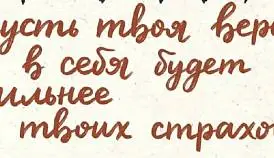 усть твоя вера
в себя будет
ильнее
твоих страхо